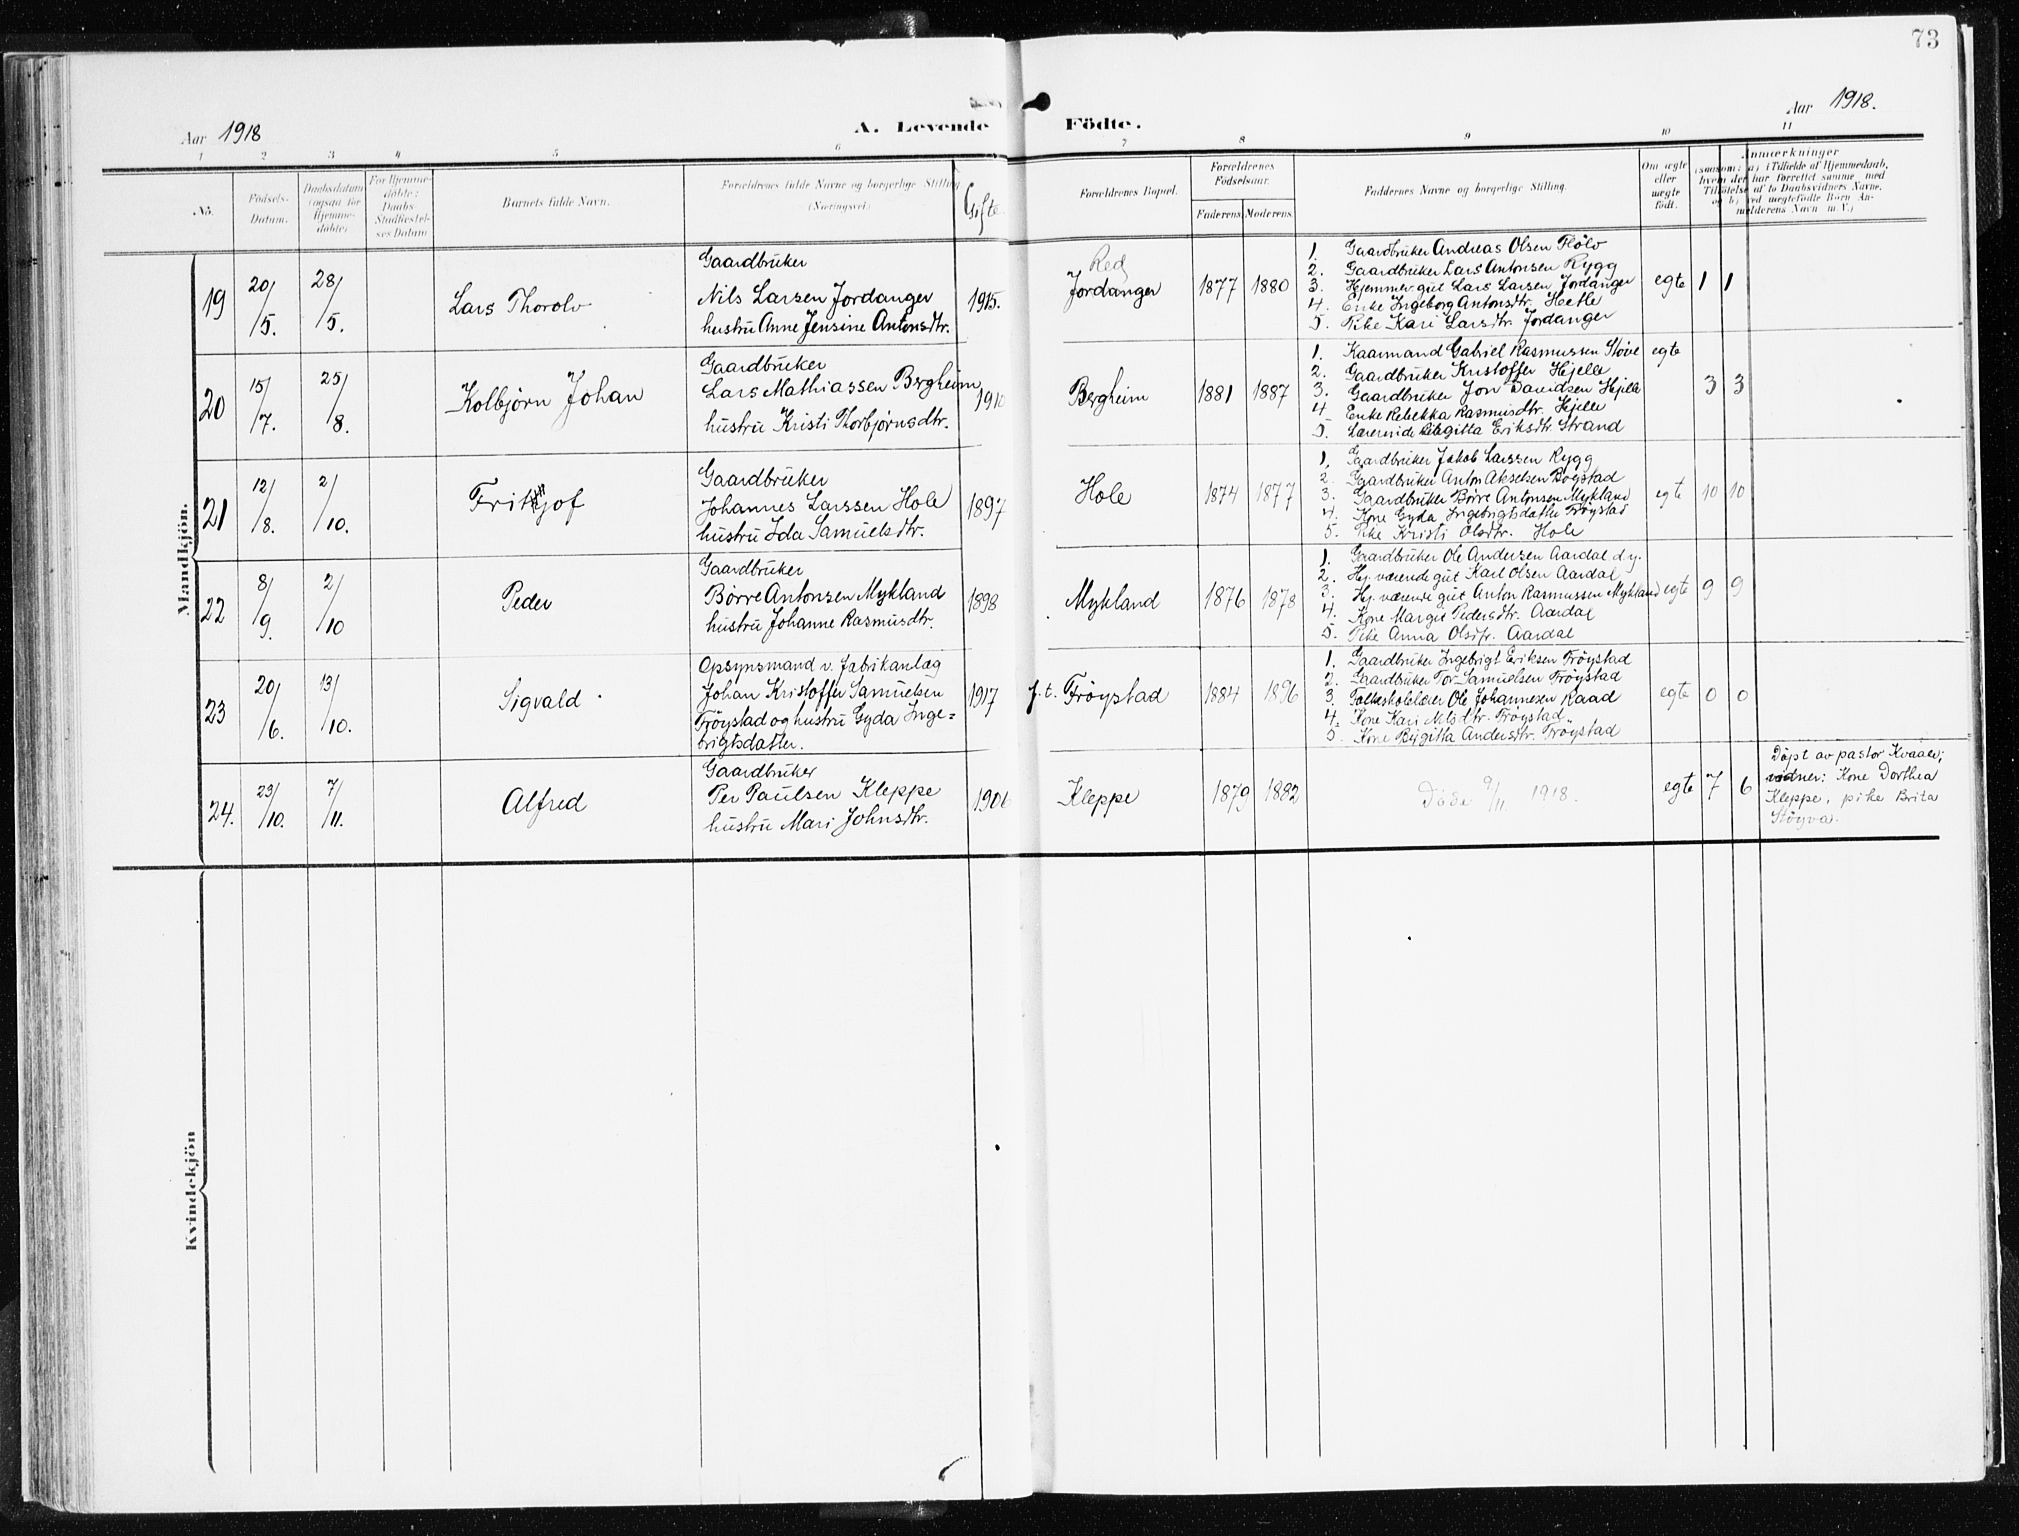 73
Aar 1918
A. Levende Födte.
Aar 1918.
1 2 3 4 5 6 7 8 9 10 11
No.
Födsels-Datum.
Daabsdatum (ogsaa for Hjemme-døbte)
For Hjemme-døbte: Daabs-Stadfæstel-ses Datum
Barnets fulde Navn.
Forældrenes fulde Navne og borgerlige Stilling (Næringsvei.)
Gifte
Forældrenes Bopæl.
Forældrenes Födselsaar.
Faderens Moderens
Faddernes Navne og borgerlige Stilling.
Om ægte eller uægte födt.
Anmærkninger
Mandkjön.
19
20/5.
28/5.
Lars Thorolv
Gaardbruker
Nils Larsen Jordanger
hustru Anne Jensine Antonsdtr.
1915.
Red
Jordanger
1877 1880
1. Gaardbruker Andreas Olsen Flölo
2. Gaardbruker Lars Antonsen Rygg
3. Hjemmev. gut Lars Larsen Jordanger
4. Enke Ingeborg Antonsdtr. Hetle
5. Pike Kari Larsdtr. Jordanger
egte 1 1
20
15/7.
25/8.
Kolbjørn Johan
Gaardbruker
Lars Mathiassen Bergheim
hustru Kristi Thorbjørnsdtr.
Bergheim
1881 1887
1. Kaarmand Gabriel Rasmussen Støve
2. Gaardbruker Kristoffer Hjelle
3. Gaardbruker Jon Davidsen Hjelle
4. Enke Rebekka Rasmusdtr. Hjelle
5. Eriksdtr. Strand
egte
3 3
21
12/8.
2/10.
Gaardbruker
Johannes Larssen Hole
hustru Ida Samuelsdtr.
1897
Hole
1874 1877
1. Gaardbruker Jakob Larssen Rygg
2. Gaardbruker Anton Akselsen Bøystad
3. Gaardbruker Børre Antonsen Mykland
4. Kone Gyda Ingebrigtsdatter Frøystad
5. Pike Kristi Olsdtr. Hole
egte 10 10
22
8/9.
2/10
Peder
Gaardbruker
Børre Antonsen Mykland
hustru Johanne Rasmusdtr.
1898
Mykland
1876 1878
1. Gaardbruker Ole Andersen Aardal d.y.
2. Hj. værende gut Karl Olsen Aardal
3. Hj. værende gut Anton Rasmussen Mykland
4. Kone Margit Pedersdtr. Aardal
5. Pike Anna Olsdtr. Aardal
egte 9 9
23
20/6.
13/10.
Sigvald
Opsynsmand v. fabrikanlæg
Johan Kristoffer Samuelsen
Frøystad og hustru Gyda Inge=
brigtsdatter.
1917
f.t. Frøystad
1884 1896
1. Gaardbruker Ingebrigt Eriksen Frøystad
2. Gaardbruker Tor Samuelsen Frøystad
3. Folkeskolelærer Ole Johannesen Raad
4. Kone Kari Nilsdtr. Frøystad
5. Kone Birgitta Andersdtr. Frøystad
egte 0 0
24.
23/10.
7/11.
Alfred
Gaardbruker
Per Paulsen Kleppe
hustru Mari Johnsdtr.
1906
Kleppe
1879 1882
Döde 9/11 1918.
egte 7 6
Döpt av pastor Kvaale;
vidner: Kone Dorthea
Kleppe, pike Brita
Störva.
Kvindekjön